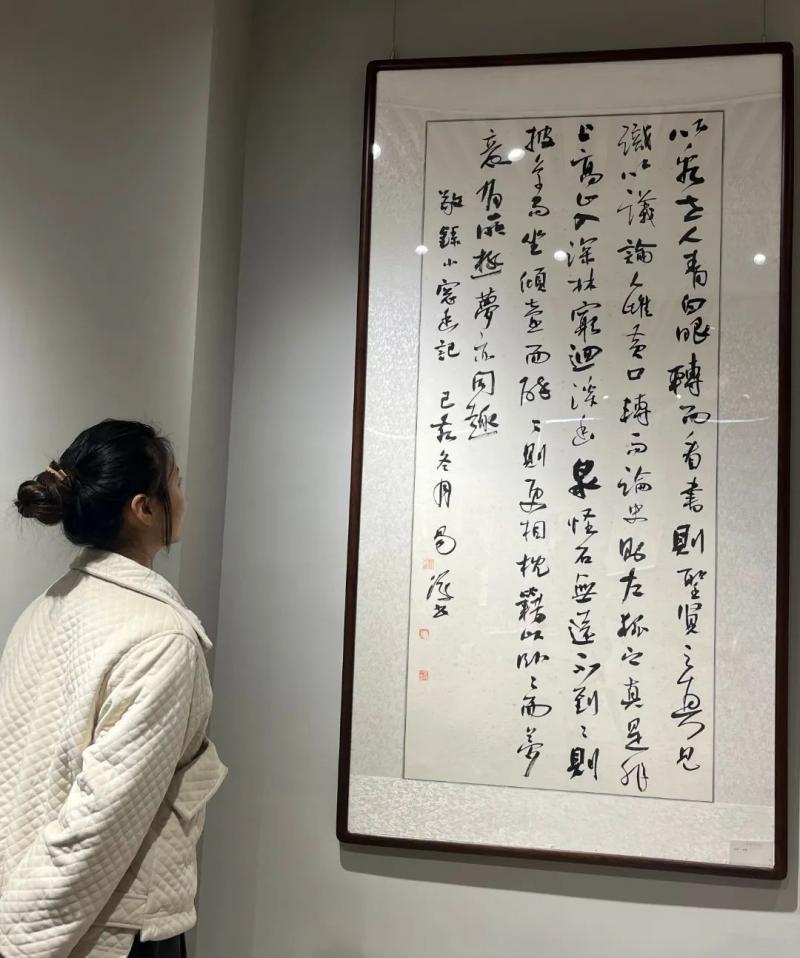 以看世人青白眼轉而看書則聖賢之真見
識以議論人雌黃口轉而論史則左狐之真是非
上高山入深林窮迴溪幽泉怪石無遠不到〻則
披草而坐傾壺而醉〻則更相枕藉以卧〻而夢
意有所極夢亦同趣
敬錄小窓幽記 己亥冬月